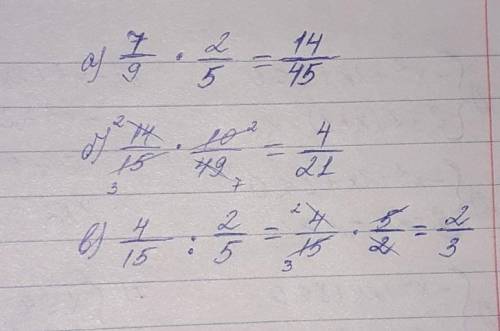 а) 7/9 · 2/5 = 14/45
б) ² 14/15 ₃ · 10 ²/49 ₇ = 4/21
в) 4/15 : 2/5 = ² 4/15 ₃ · 5/2 = 2/3